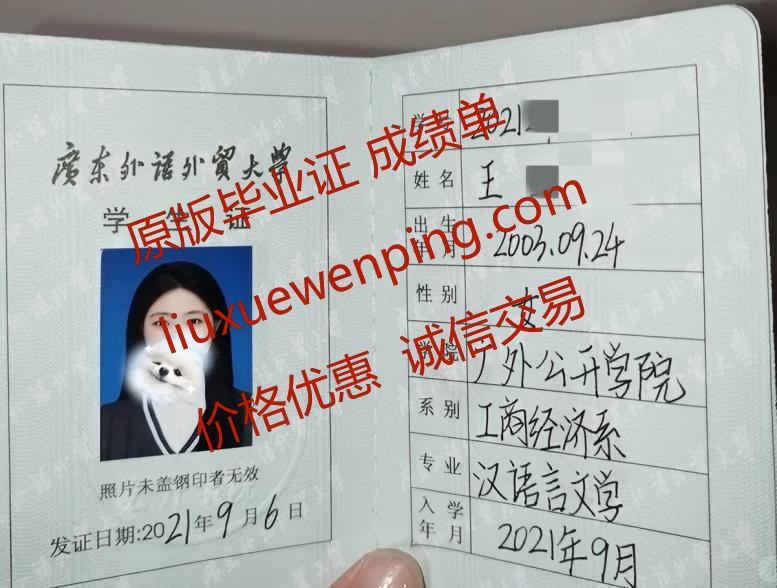 廣东外语外贸大学
学生证
照片未盖钢印者无效
发证日期:2021年9月6日
学 2021
姓名 王
出生年月 2003.09.24
性别 女
学院 广外公开学院
系别 工商经济系
专业 汉语言文学
入学年月 2021年9月
原版毕业证 成绩单
liuxuewenping.com
价格优惠 诚信交易